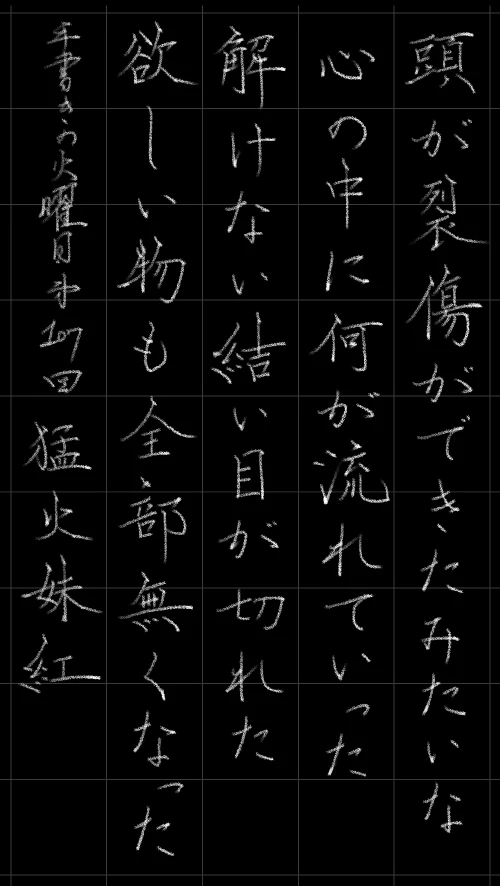 頭が裂傷ができたみたいな
心の中に何が流れていった
解けない結い目が切れた
欲しい物も全部無くなった
手書きの火曜日第107回 猛火妹紅